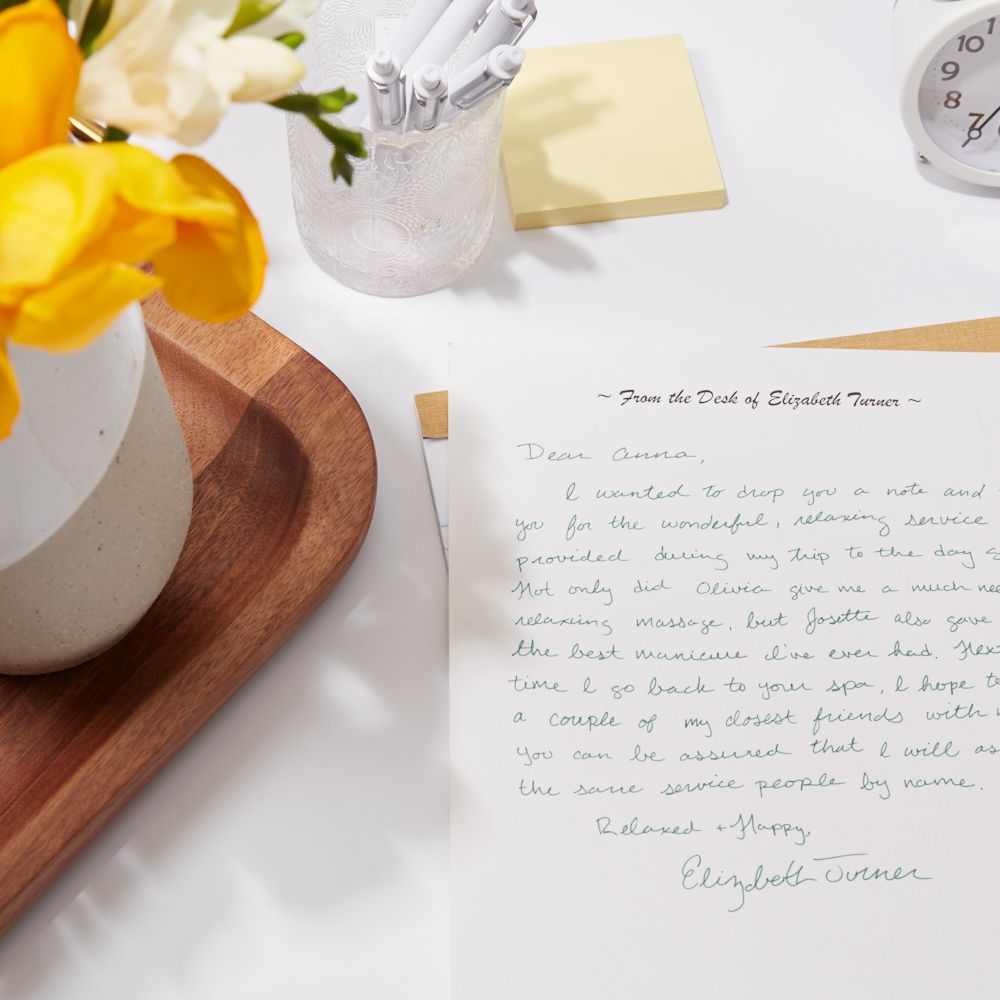 11
10
9
8
7
~ From the Desk of Elizabeth Turner ~
Dear Anna,
I wanted to drop you a note and
you for the wonderful, relaxing service
provided during my trip to the day
Not only did Olivia give me a much
relaxing massage, but Josette also gave
the best manicure I've ever had. Next
time I go back to your spa, I hope
a couple of my closest friends with
You can be assured that I will
the same service people by name.
Relaxed + Happy,
Elizabeth Turner